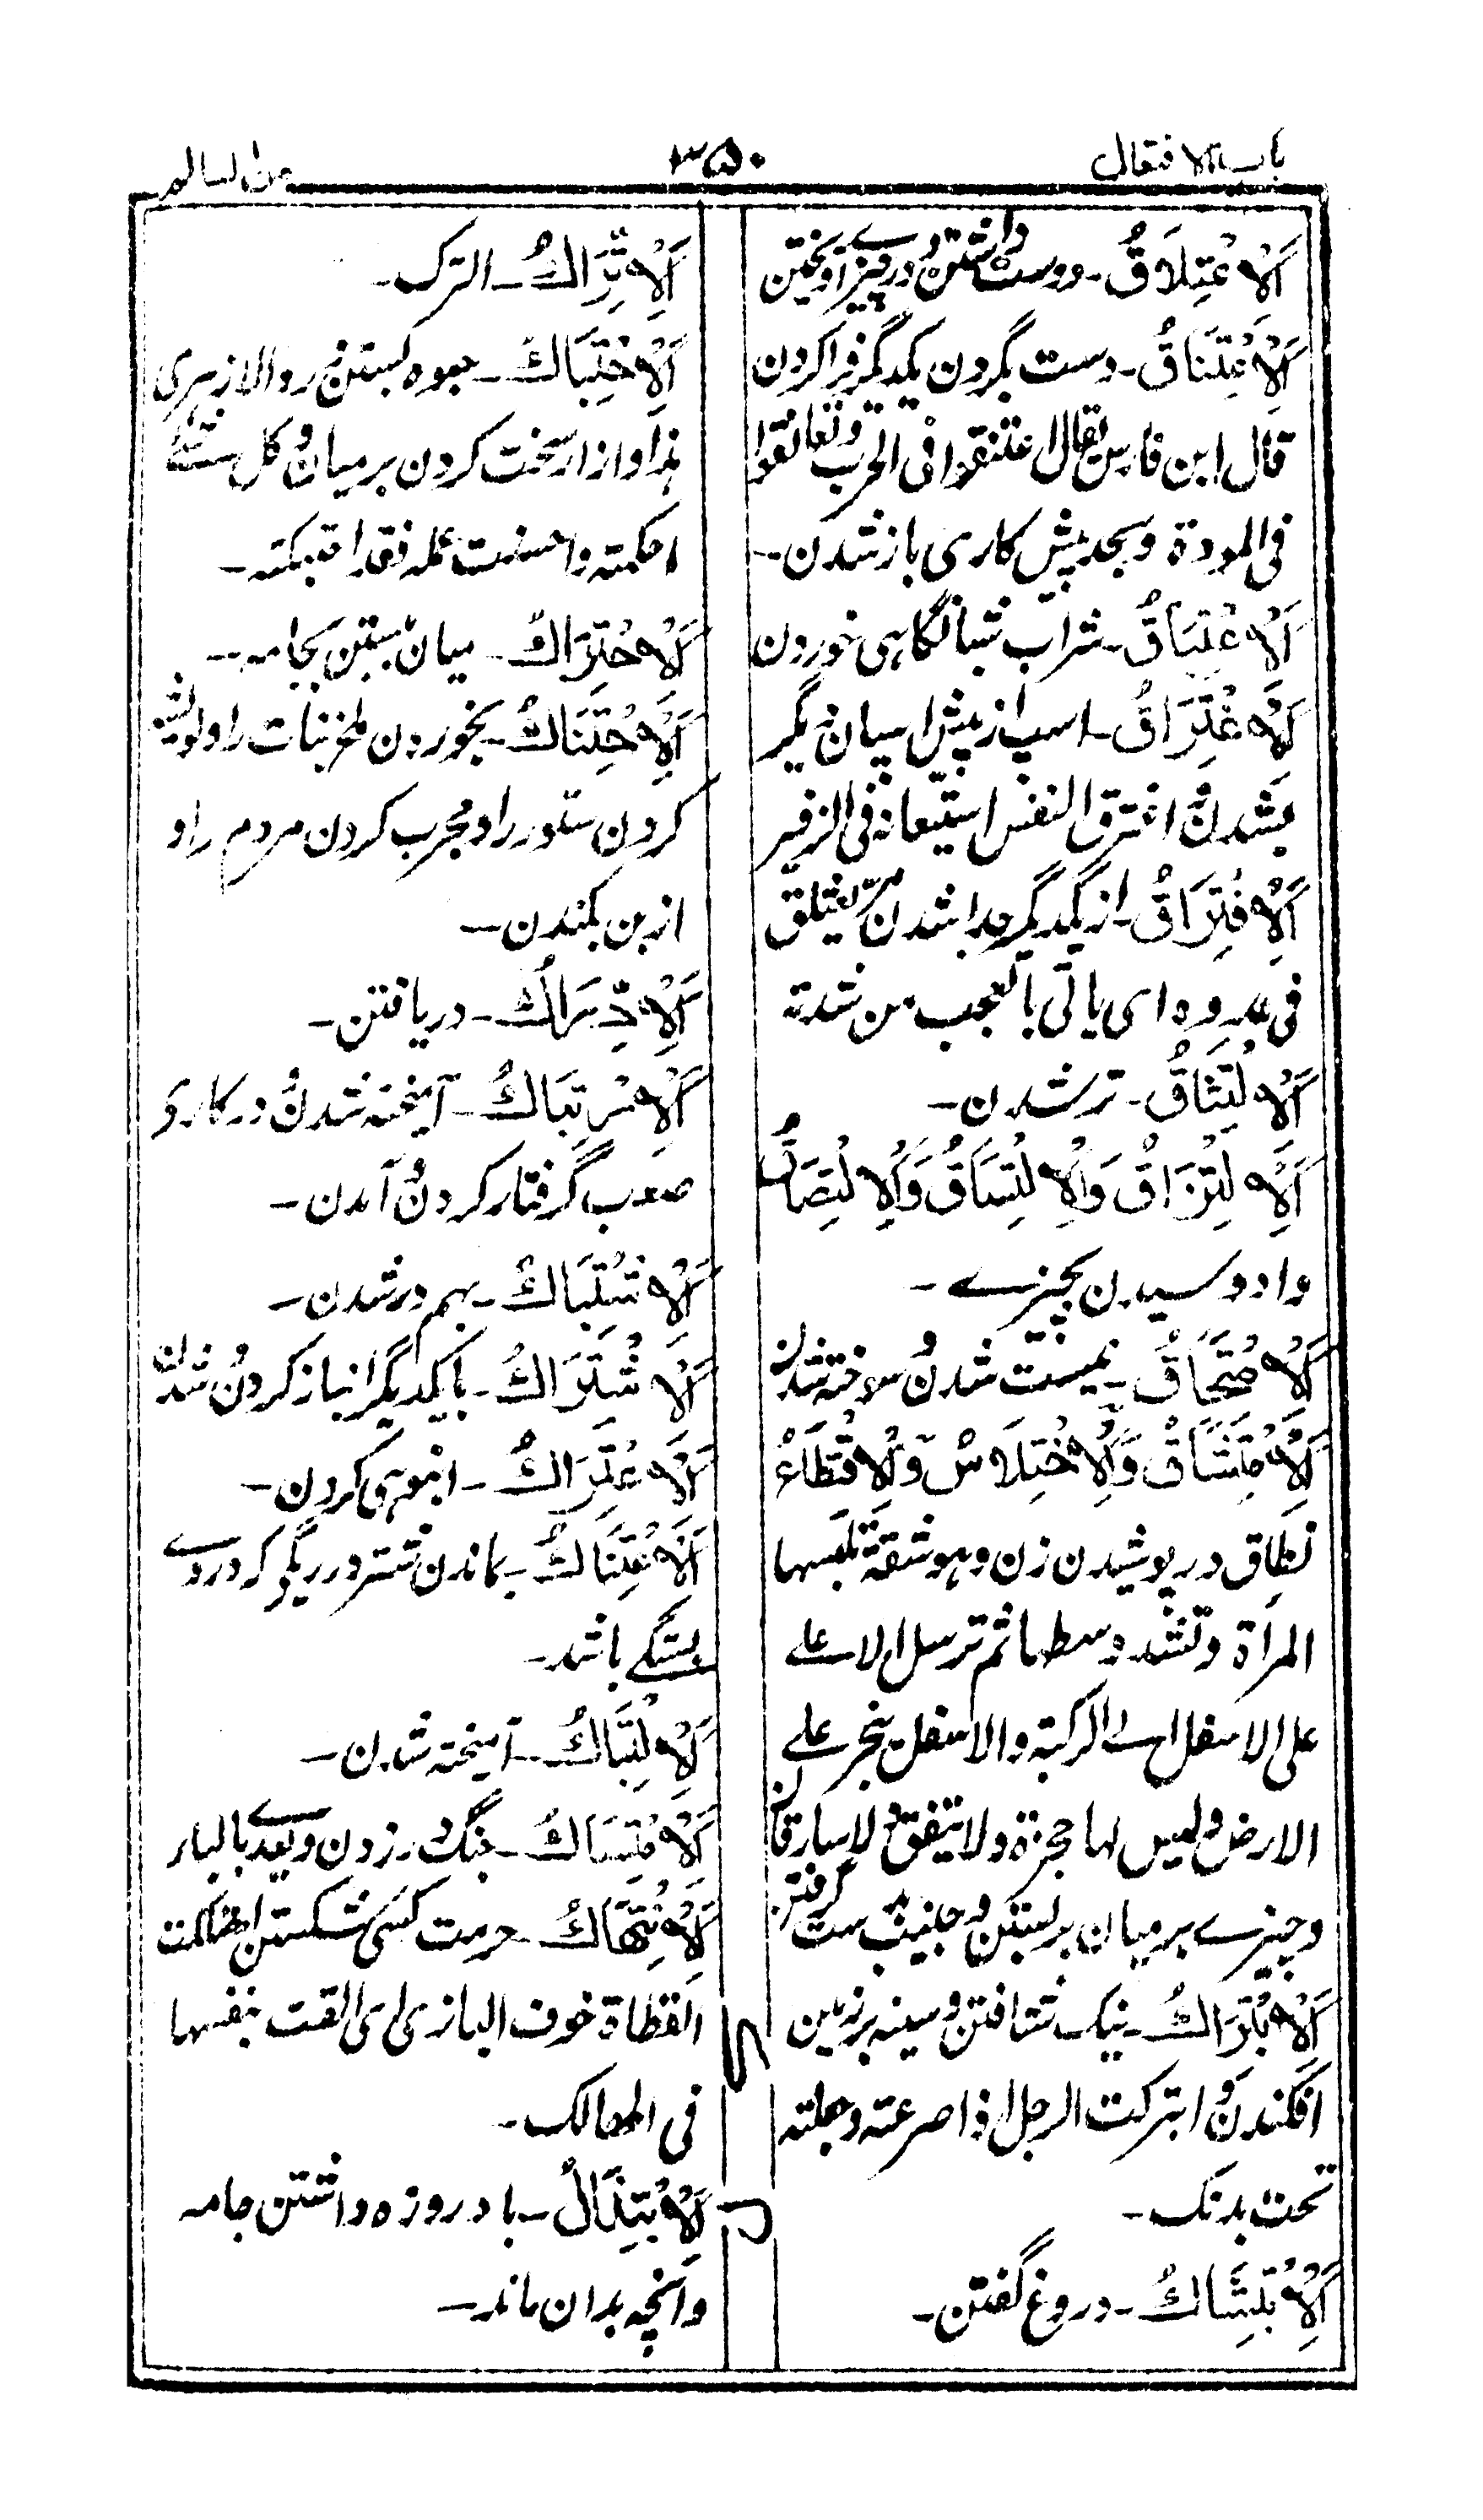 باب الافتعال
۳۵۰
من السالم
اَلْاِعْتِلَاقُ ـ دوست داشتن و در چیزے آویختن
اَلْاِعْتِنَاقُ ـ دست بگردن یکدیگر فرا کردن
قال ابن فارس یقال اعتنقوا فی الحرب و تعانقوا
فی المودة و بجد پیش کاری باز شدن ـ
اَلْاِغْتِبَاقُ ـ شراب شبانگاهی خوردن
اَلْاِغْتِرَاقُ ـ اسپ از پیش اسپان دیگر
بشدن و اغترق النفس استیعابه فی الزفیر
اَلْاِفْتِرَاقُ ـ از یکدیگر جدا شدن یفتلق
فی عدوه ای یاتی بالعجب من شدته
اَلْاِلْتِثَاقُ ـ تر شدن ـ
اَلْاِلْتِزَاقُ وَالْاِلْتِسَاقُ وَالْاِلْتِصَاقُ
وا دوسیدن بچیزے ـ
اَلْاِمْتِحَاقُ ـ نیست شدن و سوخته شدن
اَلْاِمْتِشَاقُ وَالْاِخْتِلَاسُ وَالْاِقْتِطَاعُ
نطاق در پوشیدن زن و هو شقة تلبسها
المرأة و تشد وسطها ثم ترسل الاعلے
علی الاسفل الے الرکبة والاسفل ینجر علے
الارض و لیس لها حجزة ولا ینفق ولا ساقان
و چیزے بر میان بر بستن و جنیبت گرفتن
اَلْاِبْتِرَاكُ ـ نیک شتافتن و سینه بر زمین
افگندن و ابترکت الرجل اذا صرعته و جعلته
تحت بدنک ـ
اَلْاِبْتِشَاكُ ـ دروغ گفتن ـ
اَلْاِتِّرَاكُ ـ الترک ـ
اَلْاِحْتِبَاكُ ـ حبوه بستن رد الازهری
هذا و ازار سخت کردن بر میان و کل شئے
احکمته و احسنت عمله فقد احتبکته ـ
اَلْاِحْتِزَاكُ ـ میان بستن بجامه ـ
اَلْاِحْتِنَاكُ ـ بخوردن ملخ نبات را و لویشه
کردن ستور را و مجرب کردن مردم را و
از بن بکندن ـ
اَلْاِدِّرَاكُ ـ دریافتن ـ
اَلْاِرْتِبَاكُ ـ آمیخته شدن و در کاری
صعب گرفتار کردن و آمدن ـ
اَلْاِشْتِبَاكُ ـ بهم در شدن ـ
اَلْاِشْتِرَاكُ ـ بایکدیگر انباز کردن و شدن
اَلْاِعْتِرَاكُ ـ انبوهی کردن ـ
اَلْاِعْتِنَاكُ ـ بماندن شتر در ریگی که در وے
بستگے باشد ـ
اَلْاِلْتِبَاكُ ـ آمیخته شدن ـ
اَلْاِمْتِسَاكُ ـ چنگ در زدن و یعدے بالباء
اَلْاِنْتِهَاكُ ـ حرمت کسی شکستن
القطاة خوف البازی ای القت نفسها
فی المهالک ـ
اَلْاِبْتِذَالُ ـ باد روزه داشتن جامه
و آنچه بدان ماند ـ